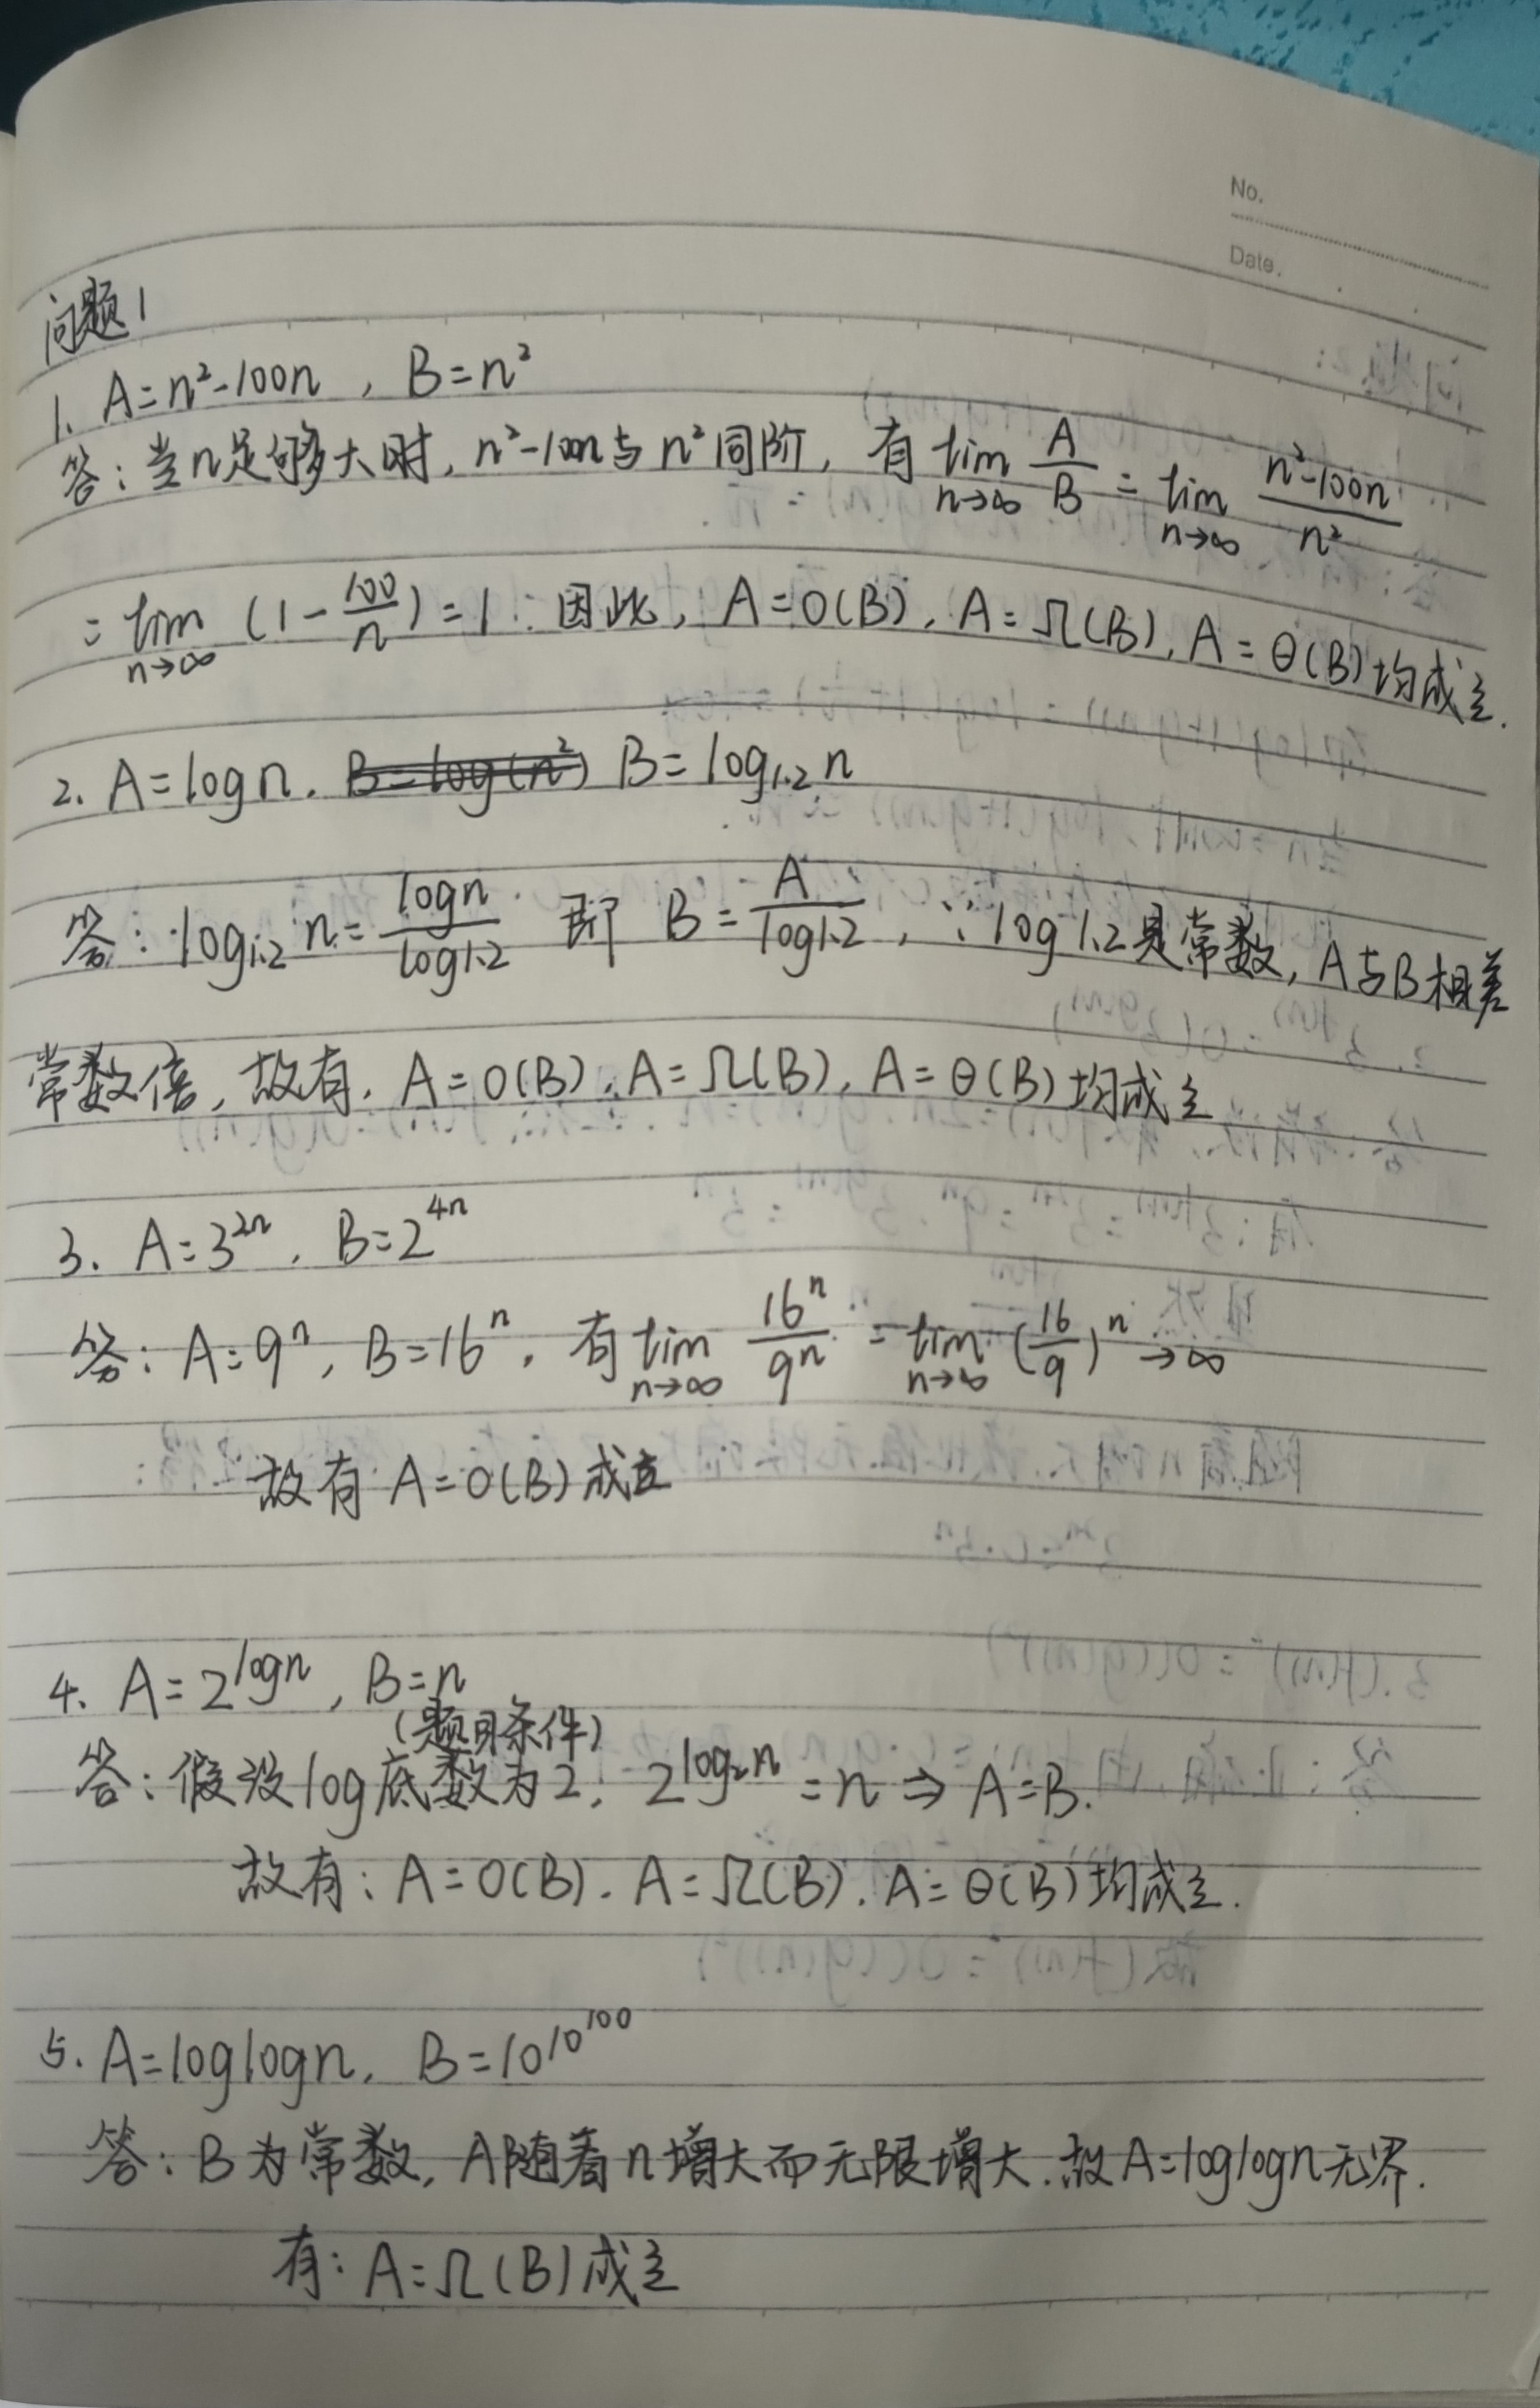 No.
Date.
问题1
1. A=n²-100n , B=n²
答:当n足够大时, n²-100n与n²同阶, 有 lim n→∞ A/B = lim n→∞ (n²-100n)/n²
= lim n→∞ (1-100/n)=1 ∴因此, A=O(B), A=Ω(B), A=θ(B)均成立.
2. A=logn. B=log(n²) B=log₁.₂n
答: log₁.₂n = logn/log1.2 即 B= A/log1.2 , ∵log1.2是常数, A与B相差
常数倍, 故有. A=O(B), A=Ω(B), A=θ(B)均成立
3. A=3²ⁿ, B=2⁴ⁿ
答: A=9ⁿ, B=16ⁿ, 有 lim n→∞ 16ⁿ/9ⁿ = lim n→∞ (16/9)ⁿ →∞
故有 A=O(B)成立
4. A=2^logn, B=n
(题目条件)
答: 假设log底数为2, 2^log₂n =n ⇒ A=B.
故有: A=O(B). A=Ω(B). A=θ(B)均成立.
5. A=loglogn, B=10^10^100
答: B为常数, A随着n增大而无限增大.故A=loglogn无界.
有: A=Ω(B)成立